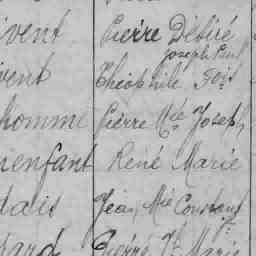 ivent Pierre Désiré
Joseph Paul
ivent Théophile Fois
homme Pierre Mie Joseph
enfant René Marie
dais Jean Mie Constant
ard Pierre Marie